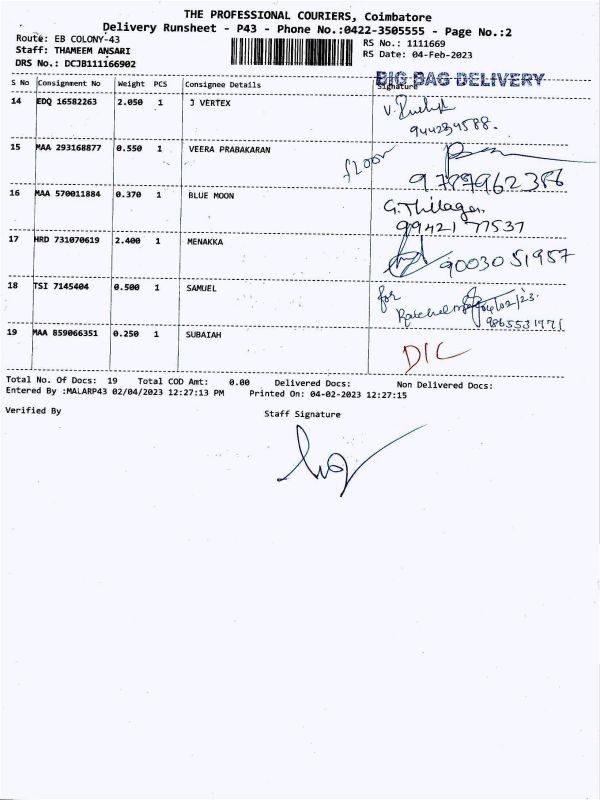 THE PROFESSIONAL COURIERS, Coimbatore
Delivery Runsheet - P43 - Phone No.:0422-3505555 - Page No.:2
Route: EB COLONY-43
Staff: THAMEEM ANSARI
DRS No.: DCJB111166902
RS No.: 1111669
RS Date: 04-Feb-2023
BIG BAG DELIVERY
S No Consignment No Weight PCS Consignee Details Signature
14 EDQ 16582263 2.050 1 J VERTEX
944234588.
15 MAA 293168877 0.550 1 VEERA PRABAKARAN
floor
9789962386
16 MAA 570011884 0.370 1 BLUE MOON G.Thilaga
99421 77537
17 HRD 731070619 2.400 1 MENAKKA 90030 51957
18 TSI 7145404 0.500 1 SAMUEL for
04/02/23.
19 MAA 859066351 0.250 1 SUBAIAH
DIC
Total No. Of Docs: 19 Total COD Amt: 0.00 Delivered Docs: Non Delivered Docs:
Entered By :MALARP43 02/04/2023 12:27:13 PM Printed On: 04-02-2023 12:27:15
Verified By Staff Signature